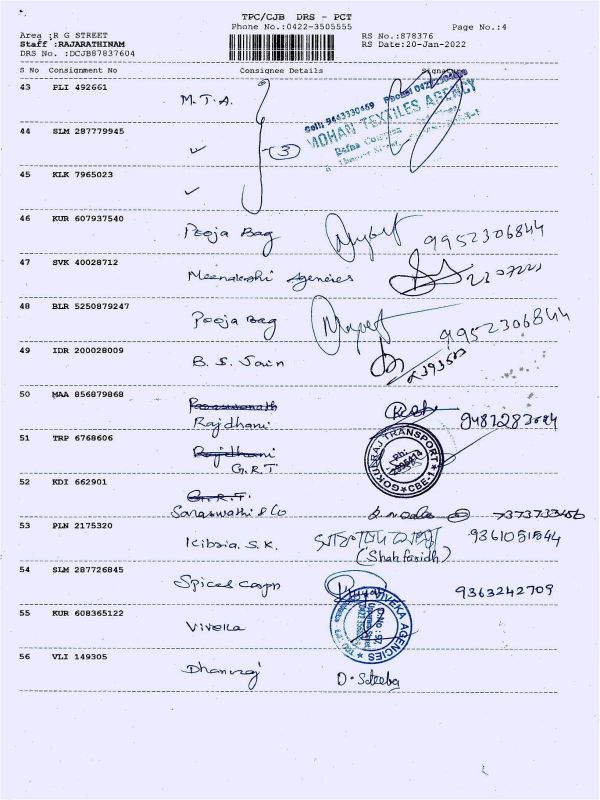 TPC/CJB DRS - PCT
Phone No.:0422-3505555
Page No.:4
Area :R G STREET
Staff :RAJARATHINAM
DRS No. :DCJB87837604
RS No.:878376
RS Date:20-Jan-2022
S No Consignment No Consignee Details Signature
43 PLI 492661
M.T.A.
Cell: 9443330469 Phone: 0422
MOHAN TEXTILES AGENCY
44 SLM 287779945
3
45 KLK 7965023
46 KUR 607937540
Pooja Bag 9952306844
47 SVK 40028712
Meenakshi Agencies
48 BLR 5250879247
Pooja Bag 9952306844
49 IDR 200028009
B. S. Jain
50 MAA 856879868
Rajdhani
51 TRP 6768606
Rajdhani
G.R.T
GOKULRAJ TRANSPORT
CBE-1
52 KDI 662901
G.R.T.
Saraswathi & Co
53 PLN 2175320
Kibsia. S.K. 9361051544
(Shah faridh)
54 SLM 287726845
Spices Corpn 9363242709
55 KUR 608365122
Viveka
VIVEKA AGENCIES
56 VLI 149305
Dhanraj